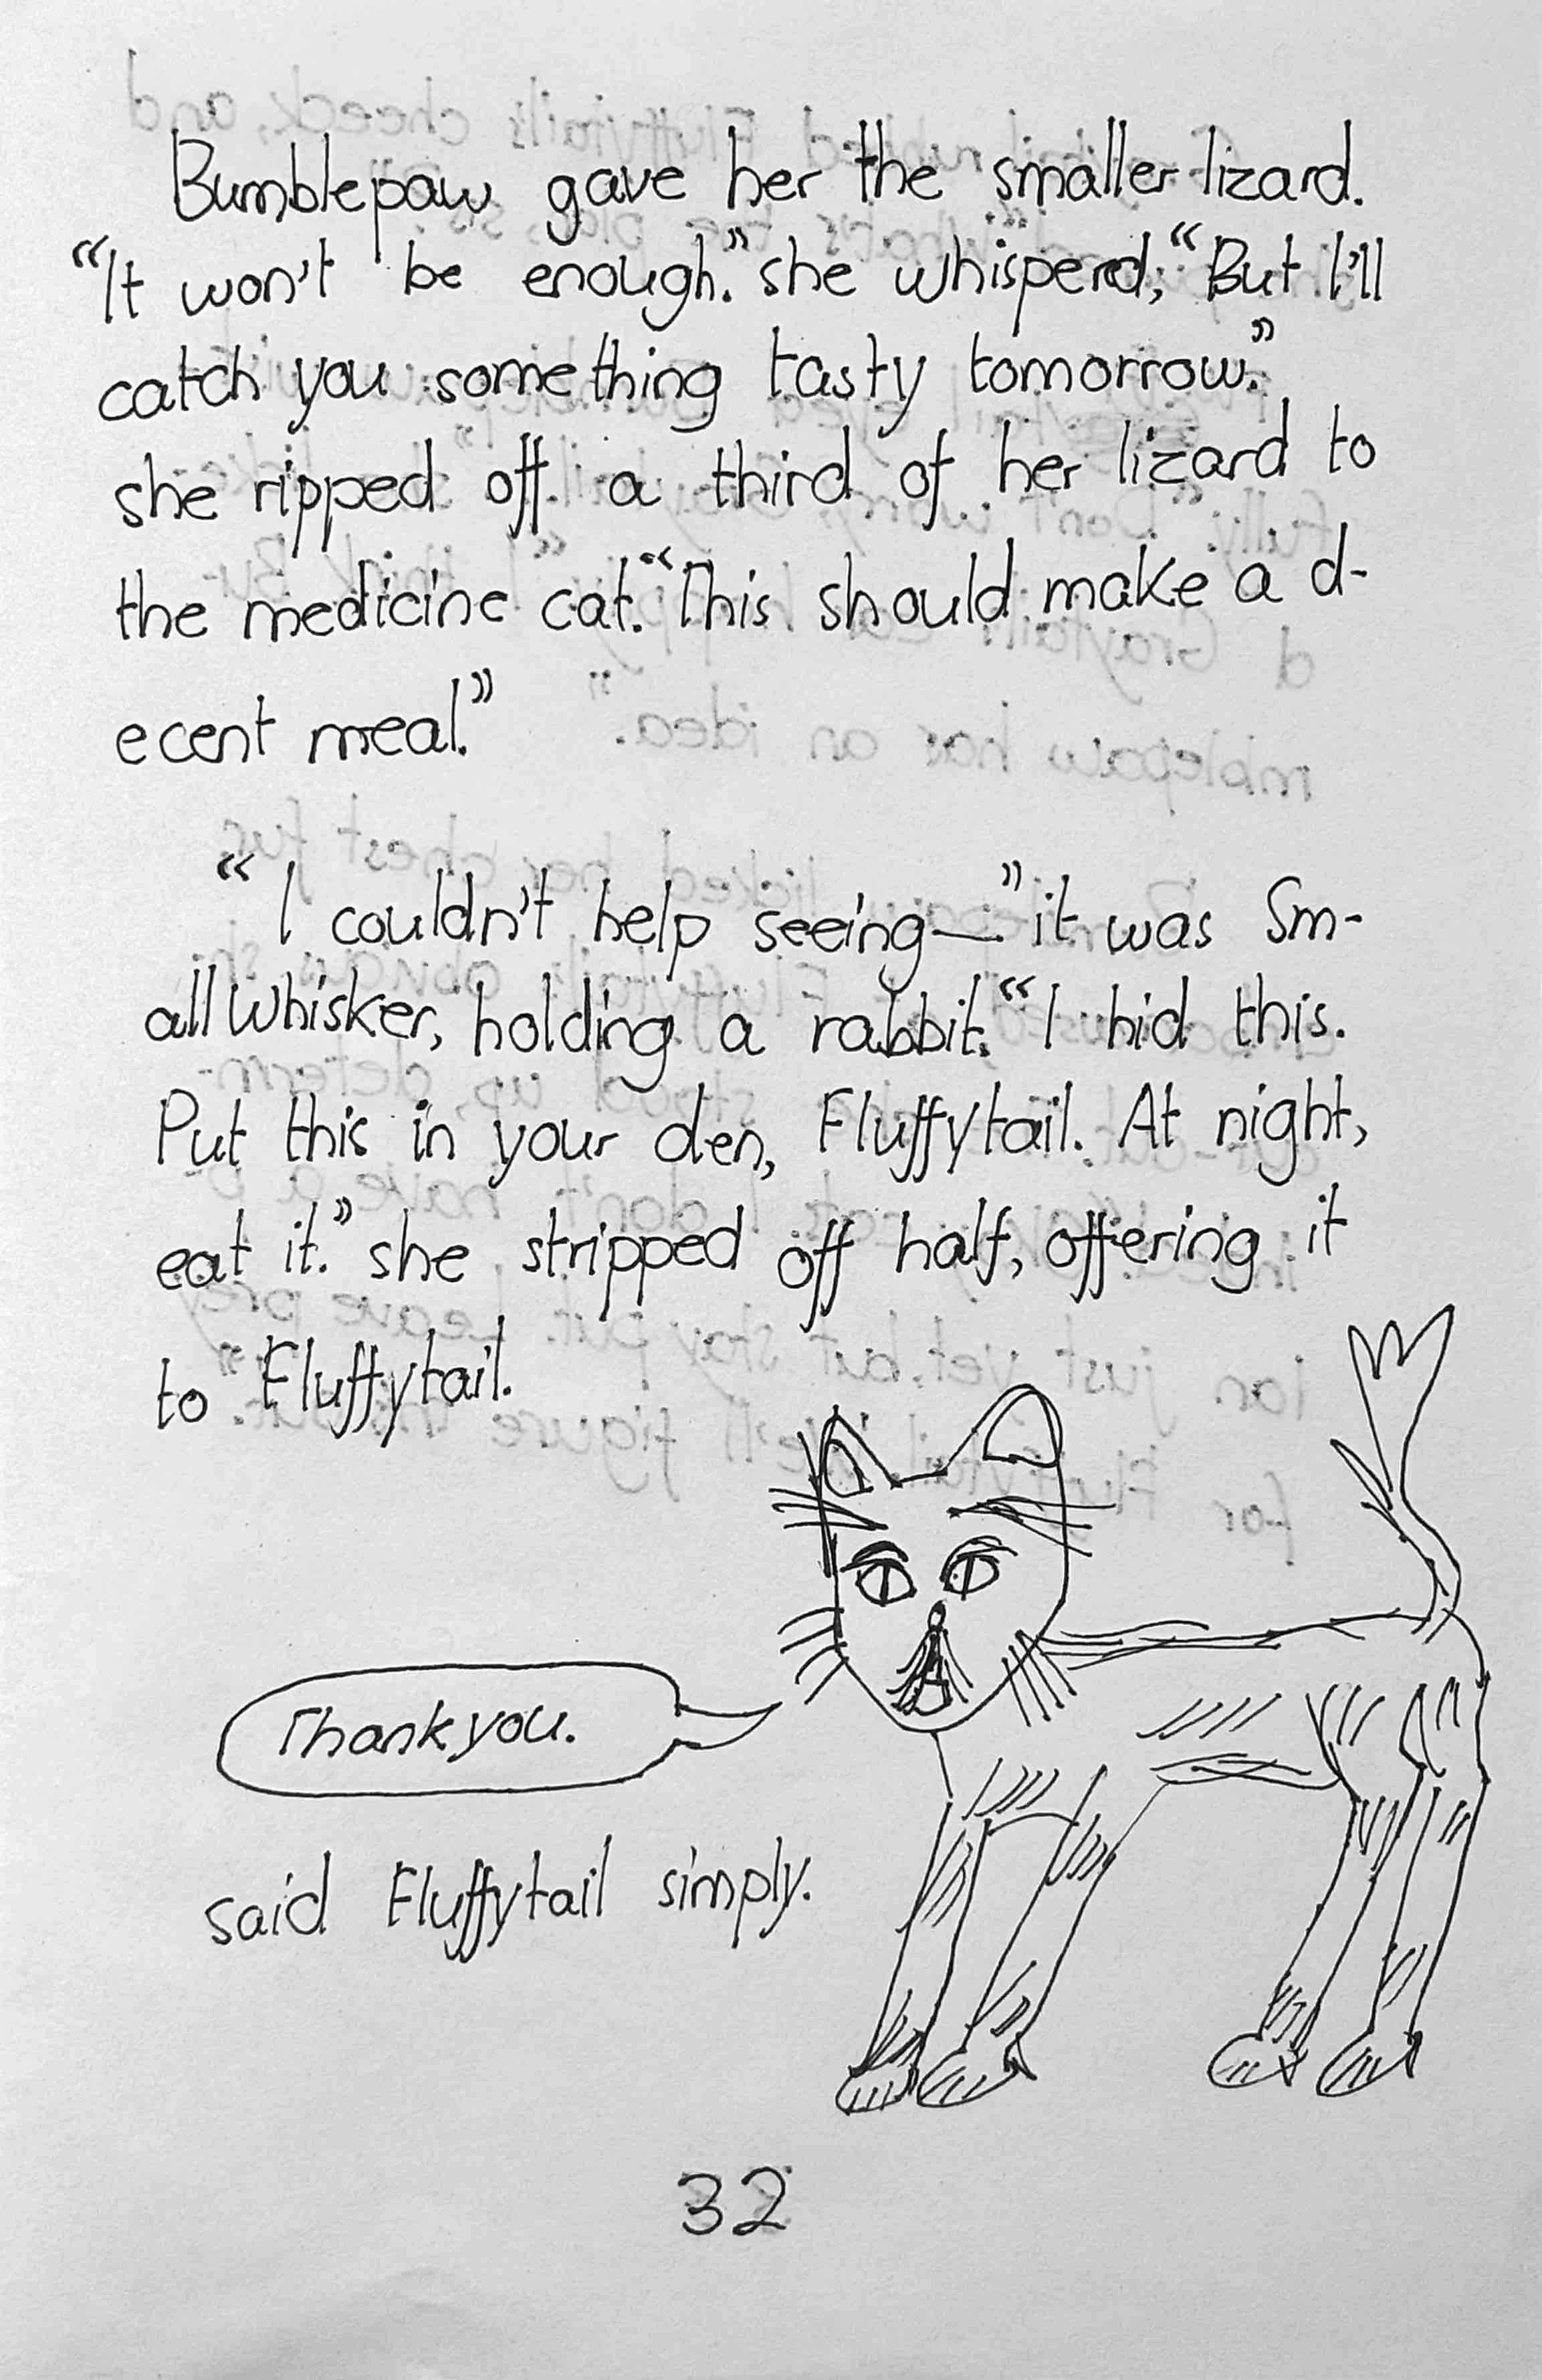 Bumblepaw gave her the smaller lizard.
“It won't be enough.” she whispered, “But I'll
catch you something tasty tomorrow.”
she ripped off a third of her lizard to
the medicine cat. “This should make a d-
ecent meal.”
“I couldn't help seeing—” it was Sm-
allwhisker, holding a rabbit. “I hid this.
Put this in your den, Fluffytail. At night,
eat it.” she stripped off half, offering it
to Fluffytail.
Thank you.
said Fluffytail simply.
32